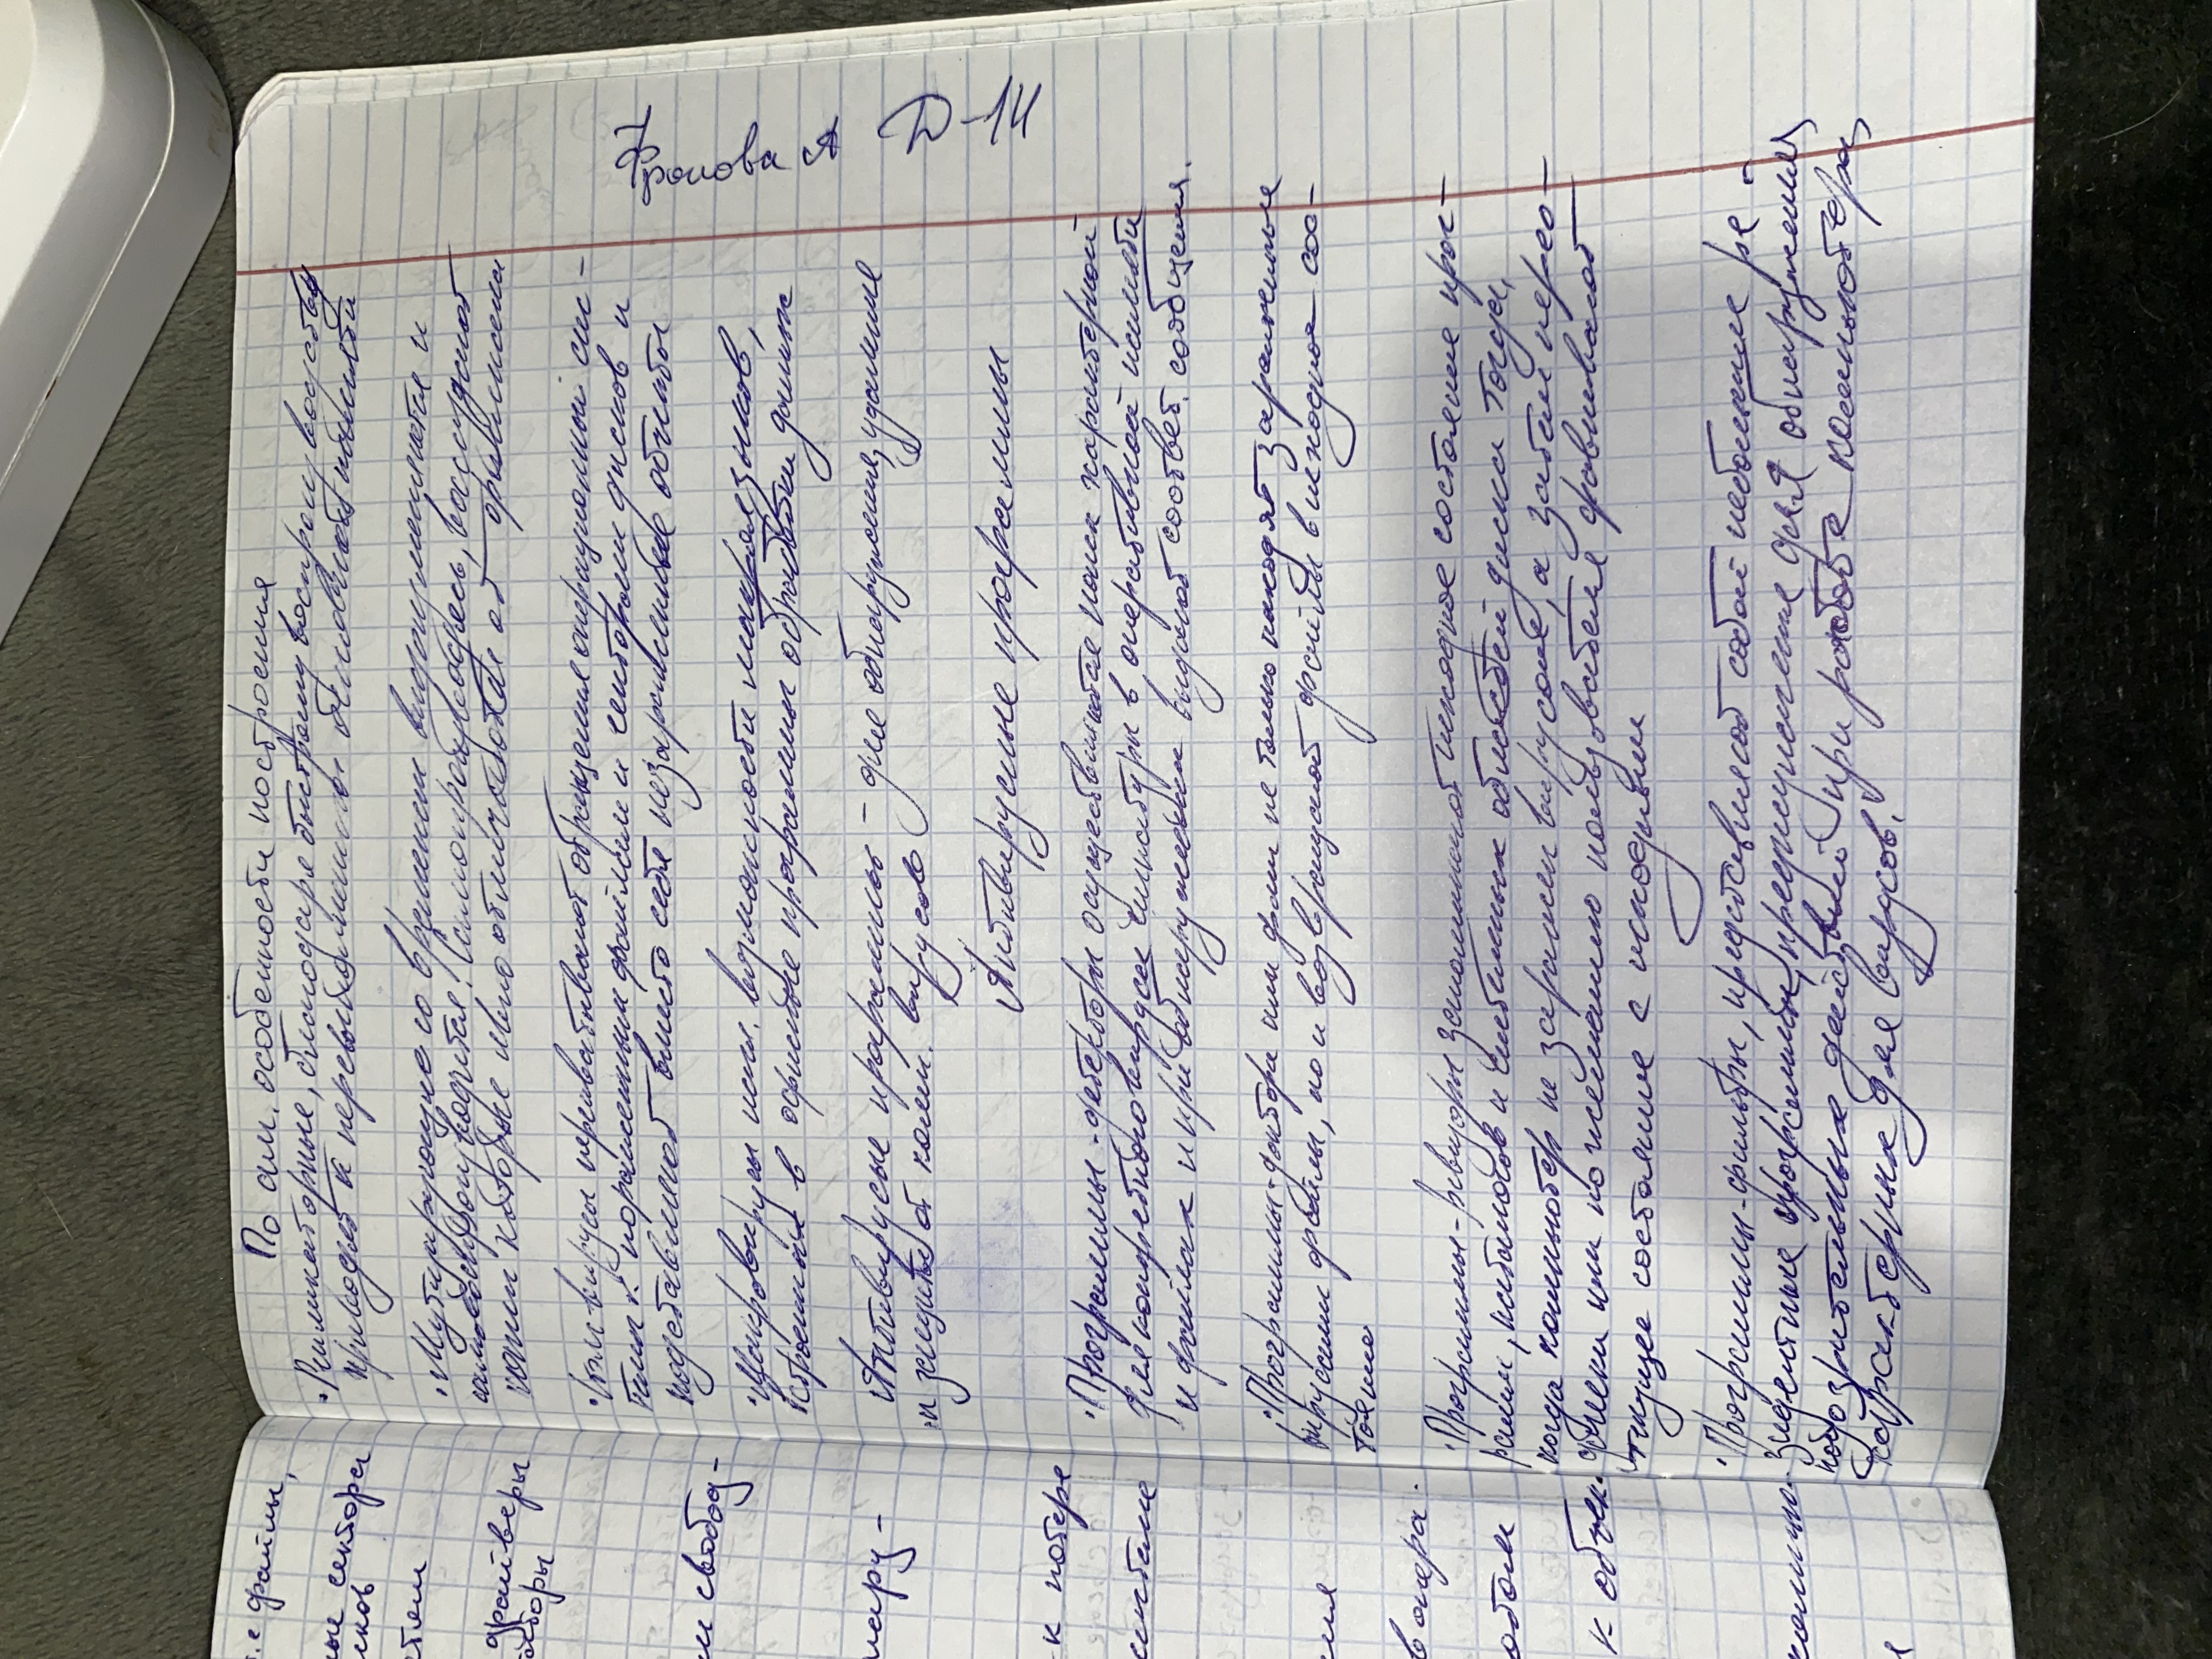 По алг. особенности построения
• Репликаторные, благодаря быстрому воспроизводству
приводят к переполнению основной памяти
• Мутирующие со временем видоизменяются и
самовоспроизводятся. Самопроизводясь, воссоздают
копии которые явно отличаются от оригинала
• Стелс-вирусы перехватывают обращения операционный сис-
темы к пораженным файлам и секторам дисков и
подставляют вместо себя незараженные объекты
• Макровирусы исп. возможности макроязыков,
встроенных в офисные программы обработки данных
Антивирусые программы - для обнаружения, удаления
и защиты от комп. вирусов
Антивирусные программы
• Программы-детекторы осуществляют поиск характерной
для конкретного вируса сигнатуры в оперативной памяти
и файлах и при обнаружении выдают соответ. сообщения.
• Программы-доктора или фаги не только находят зараженные
вирусами файлы, но и возвращают файлы в исходное сос-
тояние
• Программы-ревизоры запоминают исходное состояние прог-
рамм, каталогов и системных областей диска тогда,
когда компьютер не заражен вирусом, а затем перио-
дически или по желанию пользователя сравнивают
текущее состояние с исходным
• Программы-фильтры, представляют собой небольшие ре-
зидентные программы, предназначение для обнаружения
подозрительных действий при работе компьютера
характерных для вирусов.
Фролова А
Д-14
файлы,
сектора
драйверы
свобод-
к потере
в опера.